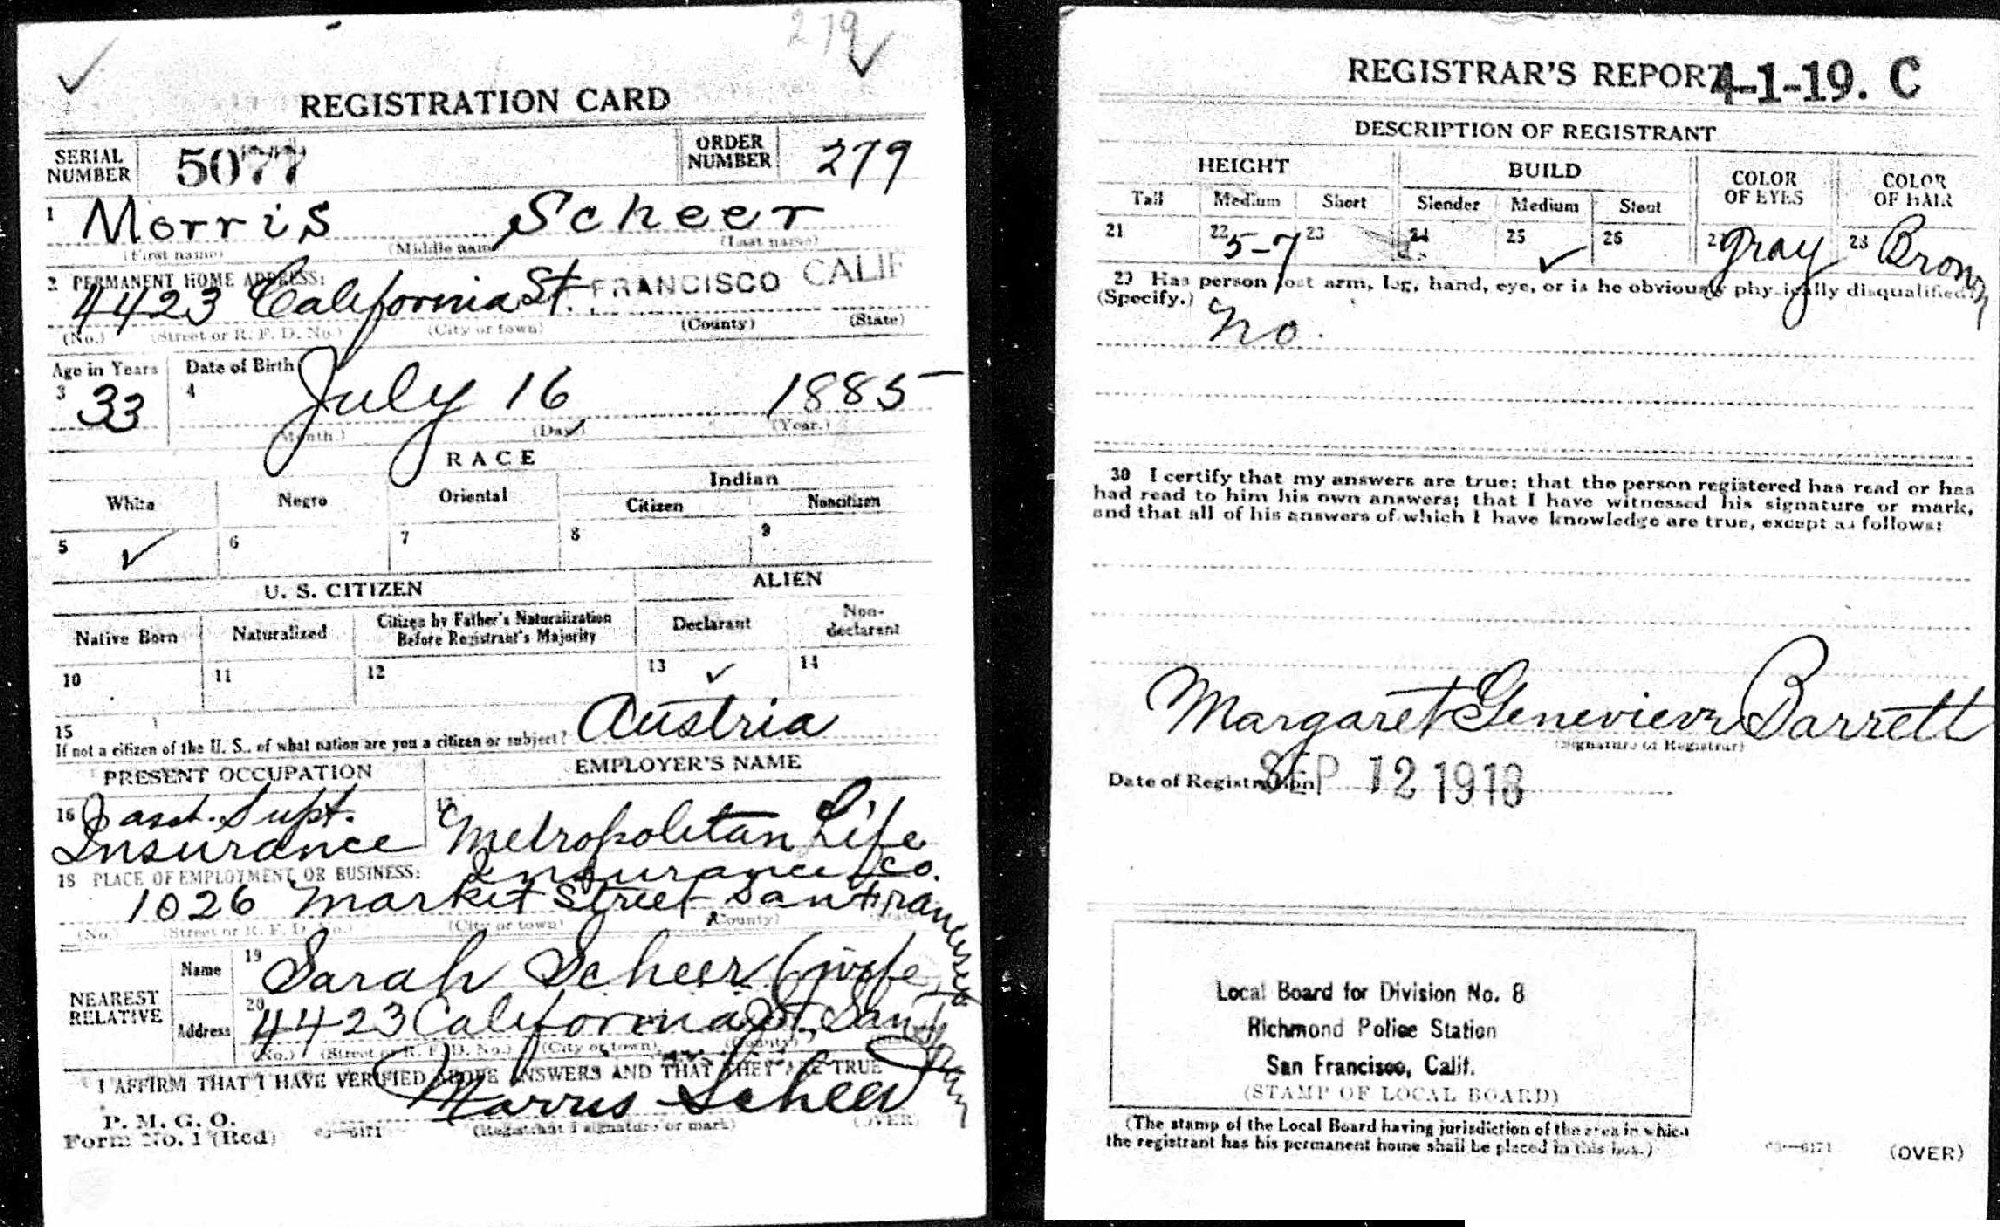 279
REGISTRATION CARD
SERIAL NUMBER 5077 ORDER NUMBER 279
1 Morris Scheer
(First name) (Middle name) (Last name)
2 PERMANENT HOME ADDRESS:
4423 California St. FRANCISCO CALIF
(No.) (Street or R. F. D. No.) (City or town) (County) (State)
Age in Years Date of Birth
3 33 4 July 16 1885
(Month.) (Day.) (Year.)
RACE
White Negro Oriental Indian
Citizen Noncitizen
5 ✓ 6 7 8 9
U. S. CITIZEN ALIEN
Native Born Naturalized Citizen by Father's Naturalization Before Registrant's Majority Declarant Non-declarant
10 11 12 13 ✓ 14
15
If not a citizen of the U. S., of what nation are you a citizen or subject? Austria
PRESENT OCCUPATION EMPLOYER'S NAME
16 asst. Supt. Insurance 17 Metropolitan Life Insurance Co.
18 PLACE OF EMPLOYMENT OR BUSINESS:
1026 Market Street San Francisco
(No.) (Street or R. F. D. No.) (City or town) (County)
NEAREST RELATIVE
Name 19 Sarah Scheer (wife
Address 20 4423 California St, San Fran
(No.) (Street or R. F. D. No.) (City or town) (County)
I AFFIRM THAT I HAVE VERIFIED ABOVE ANSWERS AND THAT THEY ARE TRUE
P. M. G. O.
Form No. 1 (Red) 03—6171 Morris Scheer
(Registrant's signature or mark) (OVER)
REGISTRAR'S REPORT 4-1-19. C
DESCRIPTION OF REGISTRANT
HEIGHT BUILD COLOR OF EYES COLOR OF HAIR
Tall Medium Short Slender Medium Stout
21 22 5-7 23 24 25 ✓ 26 27 Gray 28 Brown
29 Has person lost arm, leg, hand, eye, or is he obviously physically disqualified?
(Specify.) no.
30 I certify that my answers are true; that the person registered has read or has
had read to him his own answers; that I have witnessed his signature or mark,
and that all of his answers of which I have knowledge are true, except as follows:
Margaret Genevieve Barrett
(Signature of Registrar)
Date of Registration SEP 12 1918
Local Board for Division No. 8
Richmond Police Station
San Francisco, Calif.
(STAMP OF LOCAL BOARD)
(The stamp of the Local Board having jurisdiction of the area in which
the registrant has his permanent home shall be placed in this box.)
03—6171 (OVER)